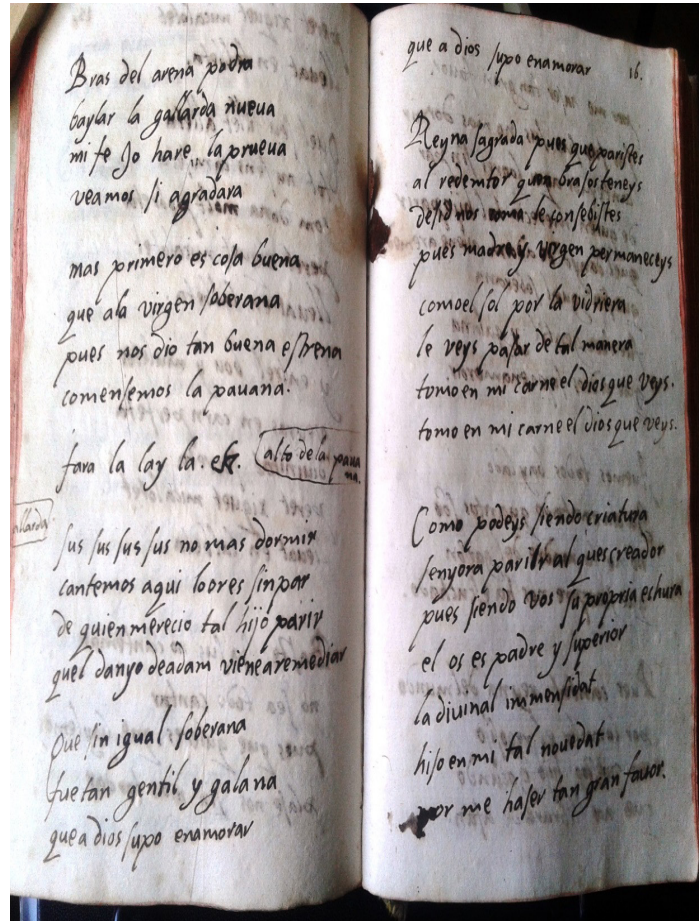 Bras del arena podra
baylar la gallarda nueua
mi fe Jo hare la prueua
veamos si agradara
mas primero es cosa buena
que ala virgen soberana
pues nos dio tan buena estrena
comensemos la pauana.
fara la lay la. etc. alto de la paua
na.
allarda
sus sus sus sus no mas dormir
cantemos aqui loores sin par
de quien merecio tal hijo parir
quel danyo deadam viene aremediar
Que sin igual soberana
fue tan gentil y galana
que a dios supo enamorar
que a dios supo enamorar 16.
Reyna sagrada pues que paristes
al redemtor quen brasos teneys
desid nos como le consebistes
pues madre y virgen permaneceys
como el sol por la vidriera
le veys pasar de tal manera
tomo en mi carne el dios que veys.
tomo en mi carne el dios que veys.
Como podeys siendo criatura
senyora parir al ques creador
pues siendo vos su propria echura
el os es padre y superior
la diuinal immensidat
hiso en mi tal nouedat
por me haser tan gran fauor.